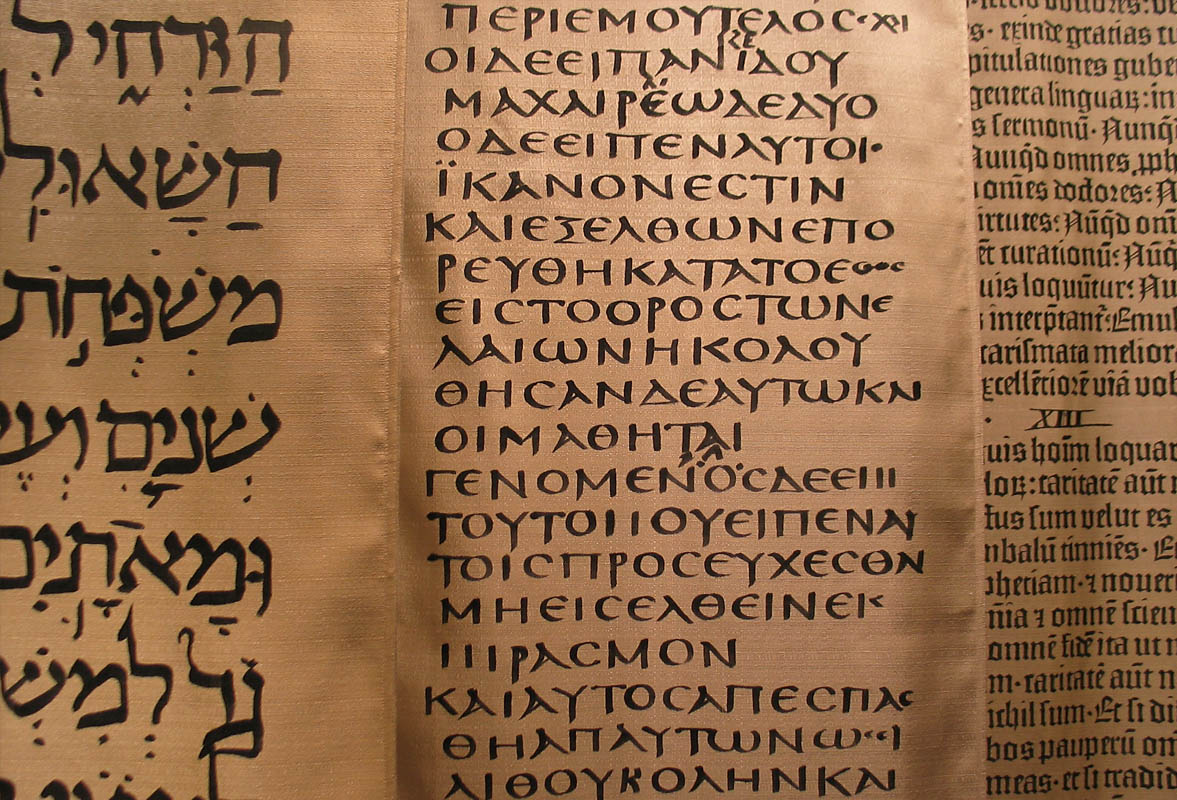 הַזַּרְחִ֑י לְ
הַשָּׁאוּלִֽ
מִשְׁפְּחֹת
שְׁנַ֧יִם
וּמָאתָֽיִם
לְמִשְׁ
ΠΕΡΙΕΜΟΥΤΕΛΟϹΕΧΙ
ΟΙΔΕΕΙΠΑΝΪΔΟΥ
ΜΑΧΑΙΡΕΩΔΕΔΥΟ
ΟΔΕΕΙΠΕΝΑΥΤΟΙ·
ΪΚΑΝΟΝΕϹΤΙΝ
ΚΑΙΕΞΕΛΘΩΝΕΠΟ
ΡΕΥΘΗΚΑΤΑΤΟΕΘΟϹ
ΕΙϹΤΟΟΡΟϹΤΩΝΕ
ΛΑΙΩΝΗΚΟΛΟΥ
ΘΗϹΑΝΔΕΑΥΤΩΚΑΙ
ΟΙΜΑΘΗΤΑΙ
ΓΕΝΟΜΕΝΟϹΔΕΕΠΙ
ΤΟΥΤΟΠΟΥΕΙΠΕΝΑΥ
ΤΟΙϹΠΡΟϹΕΥΧΕϹΘΑΙ
ΜΗΕΙϹΕΛΘΕΙΝΕΙϹ
ΠΙΡΑϹΜΟΝ
ΚΑΙΑΥΤΟϹΑΠΕϹΠΑϹ
ΘΗΑΠΑΥΤΩΝΩϹΕΙ
ΛΙΘΟΥΒΟΛΗΝΚΑΙ
doctores: de
s. exinde gratias cu
pitulationes guber
genera linguaꝝ: in
s sermonū. Nunqd
Nunqd omnes ꝓph
omēs doctores: N
irtutes: Nūqd om
ēt curationū: Nūq
uis loquūtur: Nu
interp̄tant̄: Emul
carismata melior
excellētiorē viā vob
XIII
uis hoīm loquar
loꝝ: caritatē aūt n
tus sum velut es
mbalū tinniēs. Et
phetiam. ⁊ noveri
nia ⁊ omnē scien
omnē fidē ita ut m
m. caritatē aūt n
ichil sum. Et si di
bos pauperū om
meas. et si tradid